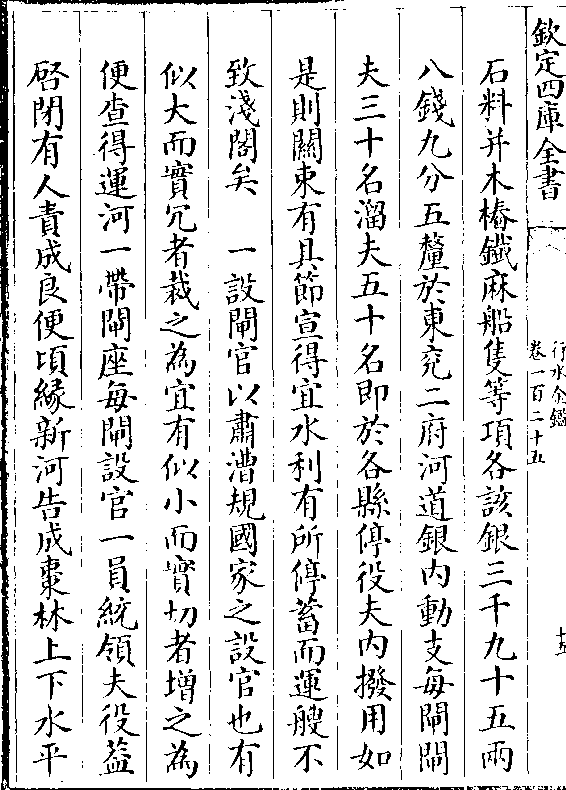 欽定四庫全書
行水金鑑
卷一百二十五
十五
石料并木樁鐵麻船隻等項各該銀三千九十五兩
八錢九分五釐於東兖二府河道銀内動支每閘閘
夫三十名溜夫五十名即於各縣停役夫内撥用如
是則關束有具節宣得宜水利有所停蓄而運艘不
致淺閣矣　一設閘官以肅漕規國家之設官也有
似大而實冗者裁之為宜有似小而實切者增之為
便查得運河一帶閘座每閘設官一員統領夫役葢
啓閉有人責成良便頃緣新河告成棗林上下水平